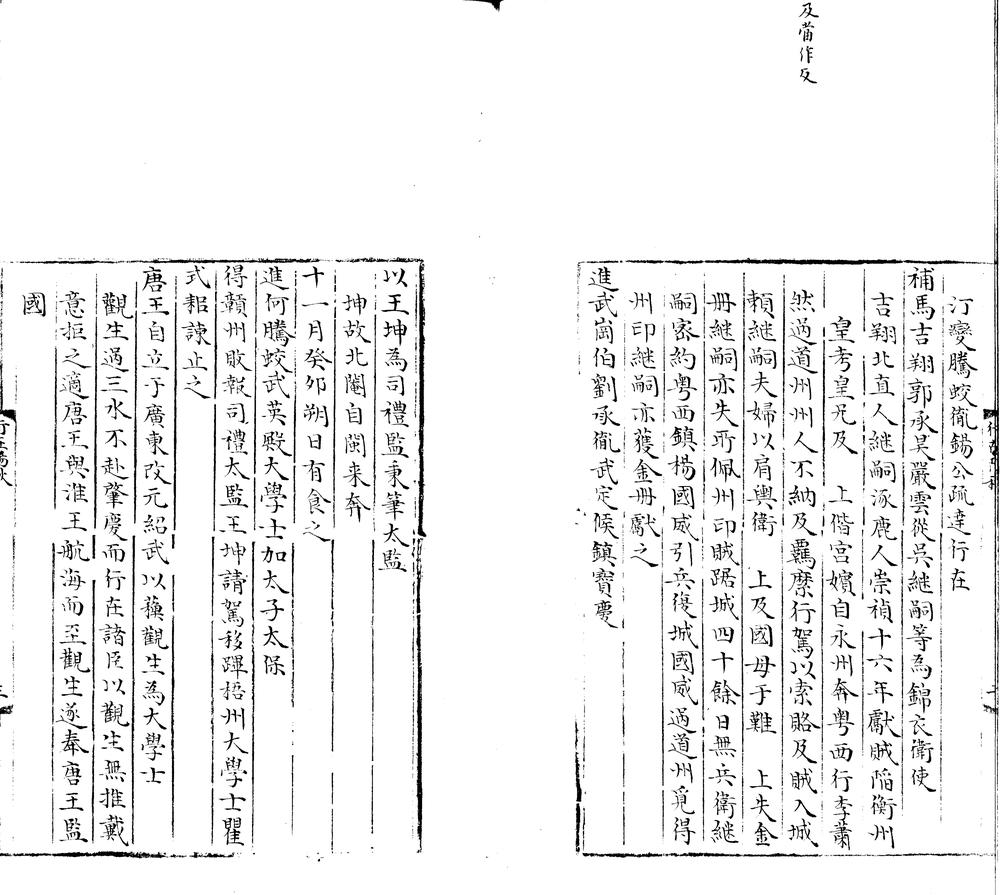 及當作反
汀變騰蛟胤錫公疏達行在
補馬吉翔郭承昊嚴雲從吳継嗣等為錦衣衛使
吉翔北直人継嗣涿鹿人崇禎十六年獻賊陷衡州
皇考皇兄及　上偕宮嬪自永州奔粤西行李蕭
然過道州州人不納及覊縻行駕以索賂及賊入城
頼継嗣夫婦以肩輿衛　上及國母于難　上失金
册継嗣亦失所佩州印賊踞城四十餘日無兵衛継
嗣密約粤西鎮楊國威引兵復城國威過道州覓得
州印継嗣亦獲金册獻之
進武崗伯劉承胤武定侯鎮寶慶
以王坤為司禮監秉筆太監
坤故北閹自閩来奔
十一月癸夘朔日有食之
進何騰蛟武英殿大學士加太子太保
得贑州敗報司禮太監王坤請駕移蹕梧州大學士瞿
式耜諫止之
唐王自立于廣東改元紹武以蘓觀生為大學士
觀生過三水不赴肇慶而行在諸臣以觀生無推戴
意拒之適唐王與淮王航海而至觀生遂奉唐王監
國